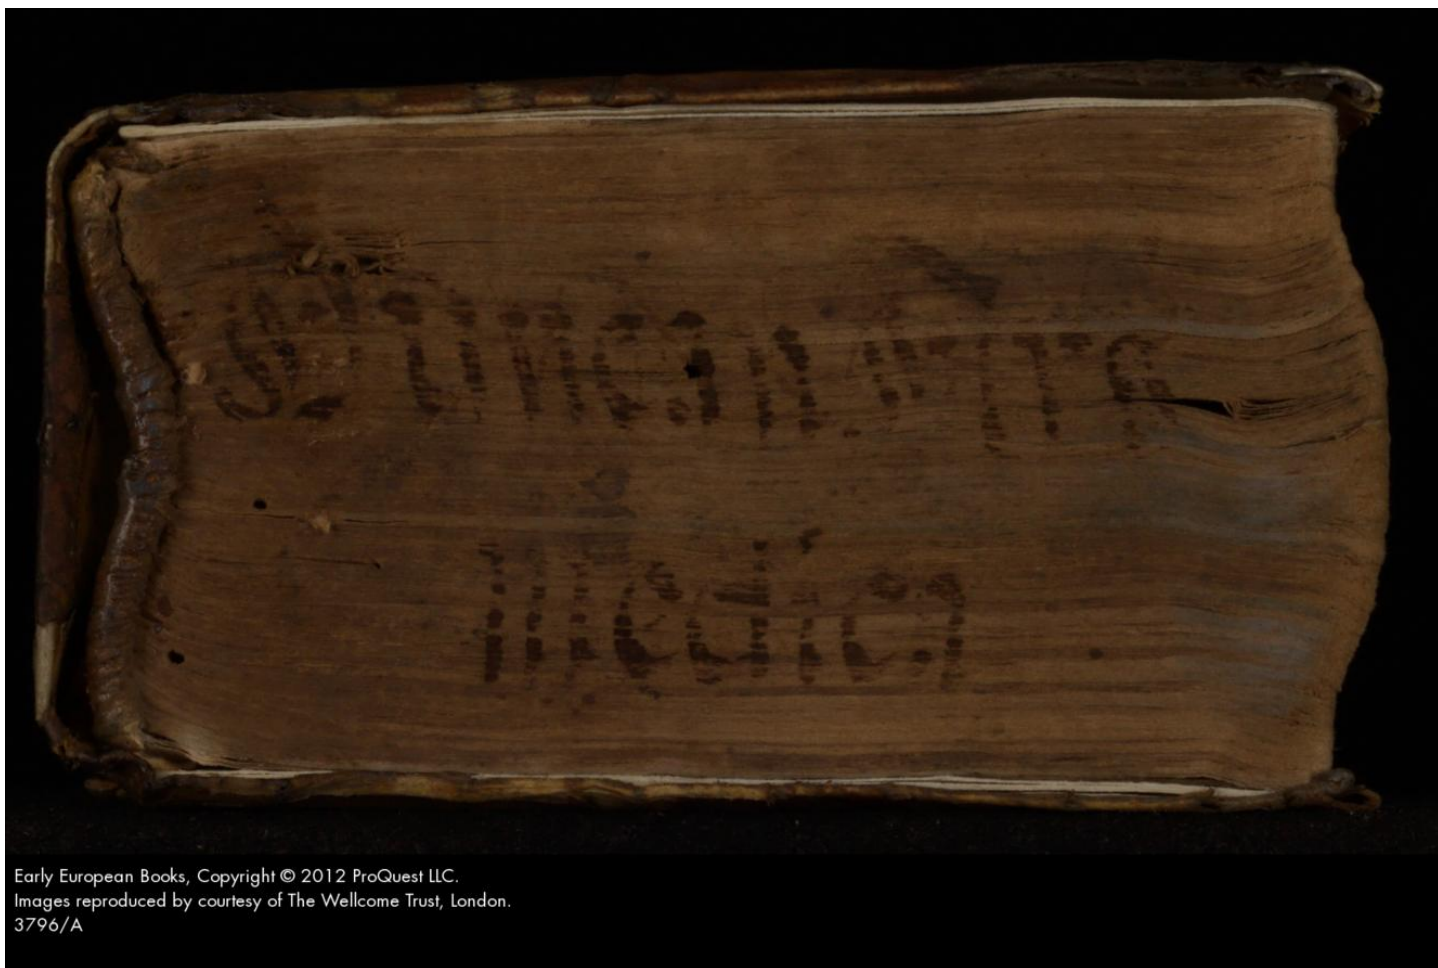 medici
Early European Books, Copyright © 2012 ProQuest LLC.
Images reproduced by courtesy of The Wellcome Trust, London.
3796/A